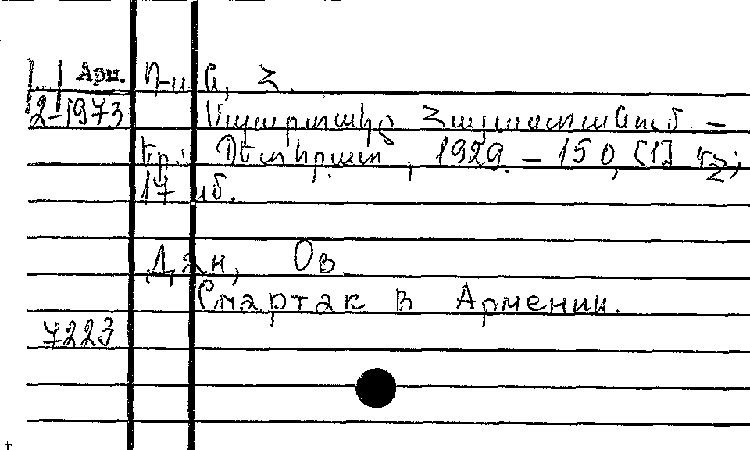 Арм.
2-1973
Սպարտակը Հայաստանում. –
Եր.: Պետհրատ, 1929. – 150, [1] էջ;
17 սմ.
Дан, Ов
Спартак в Армении.
7223